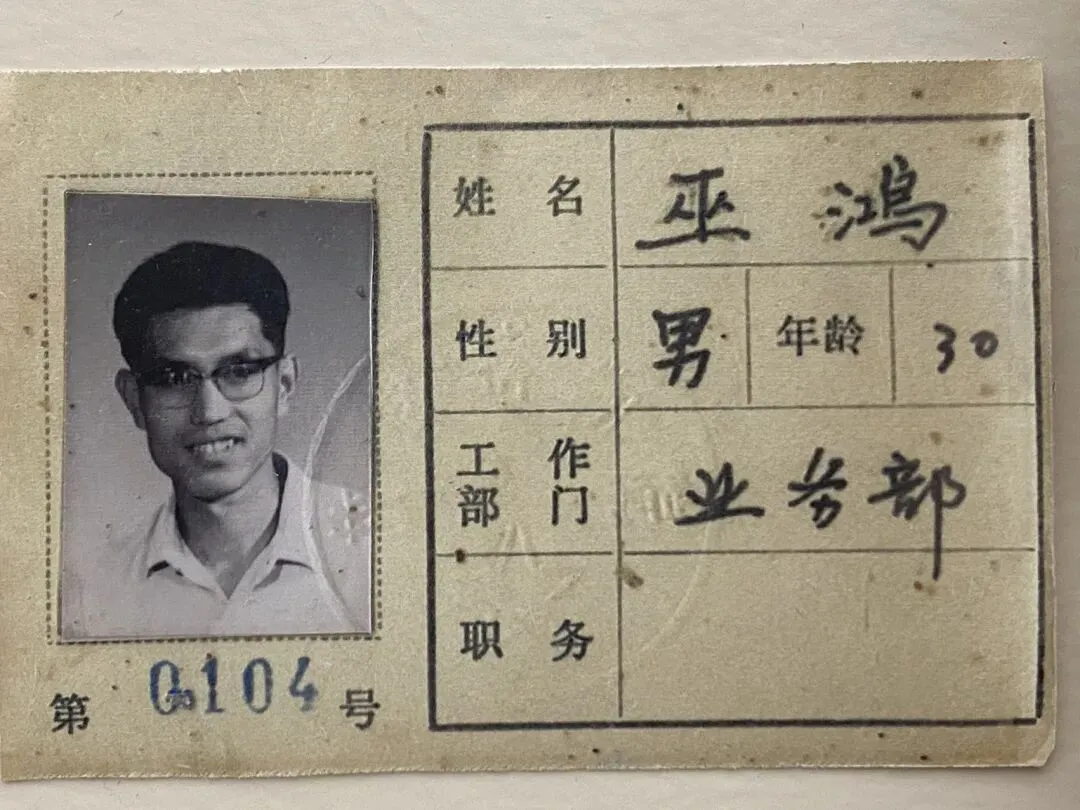 姓名 巫鸿
性别 男 年龄 30
工作部门 业务部
职务
第 0104 号